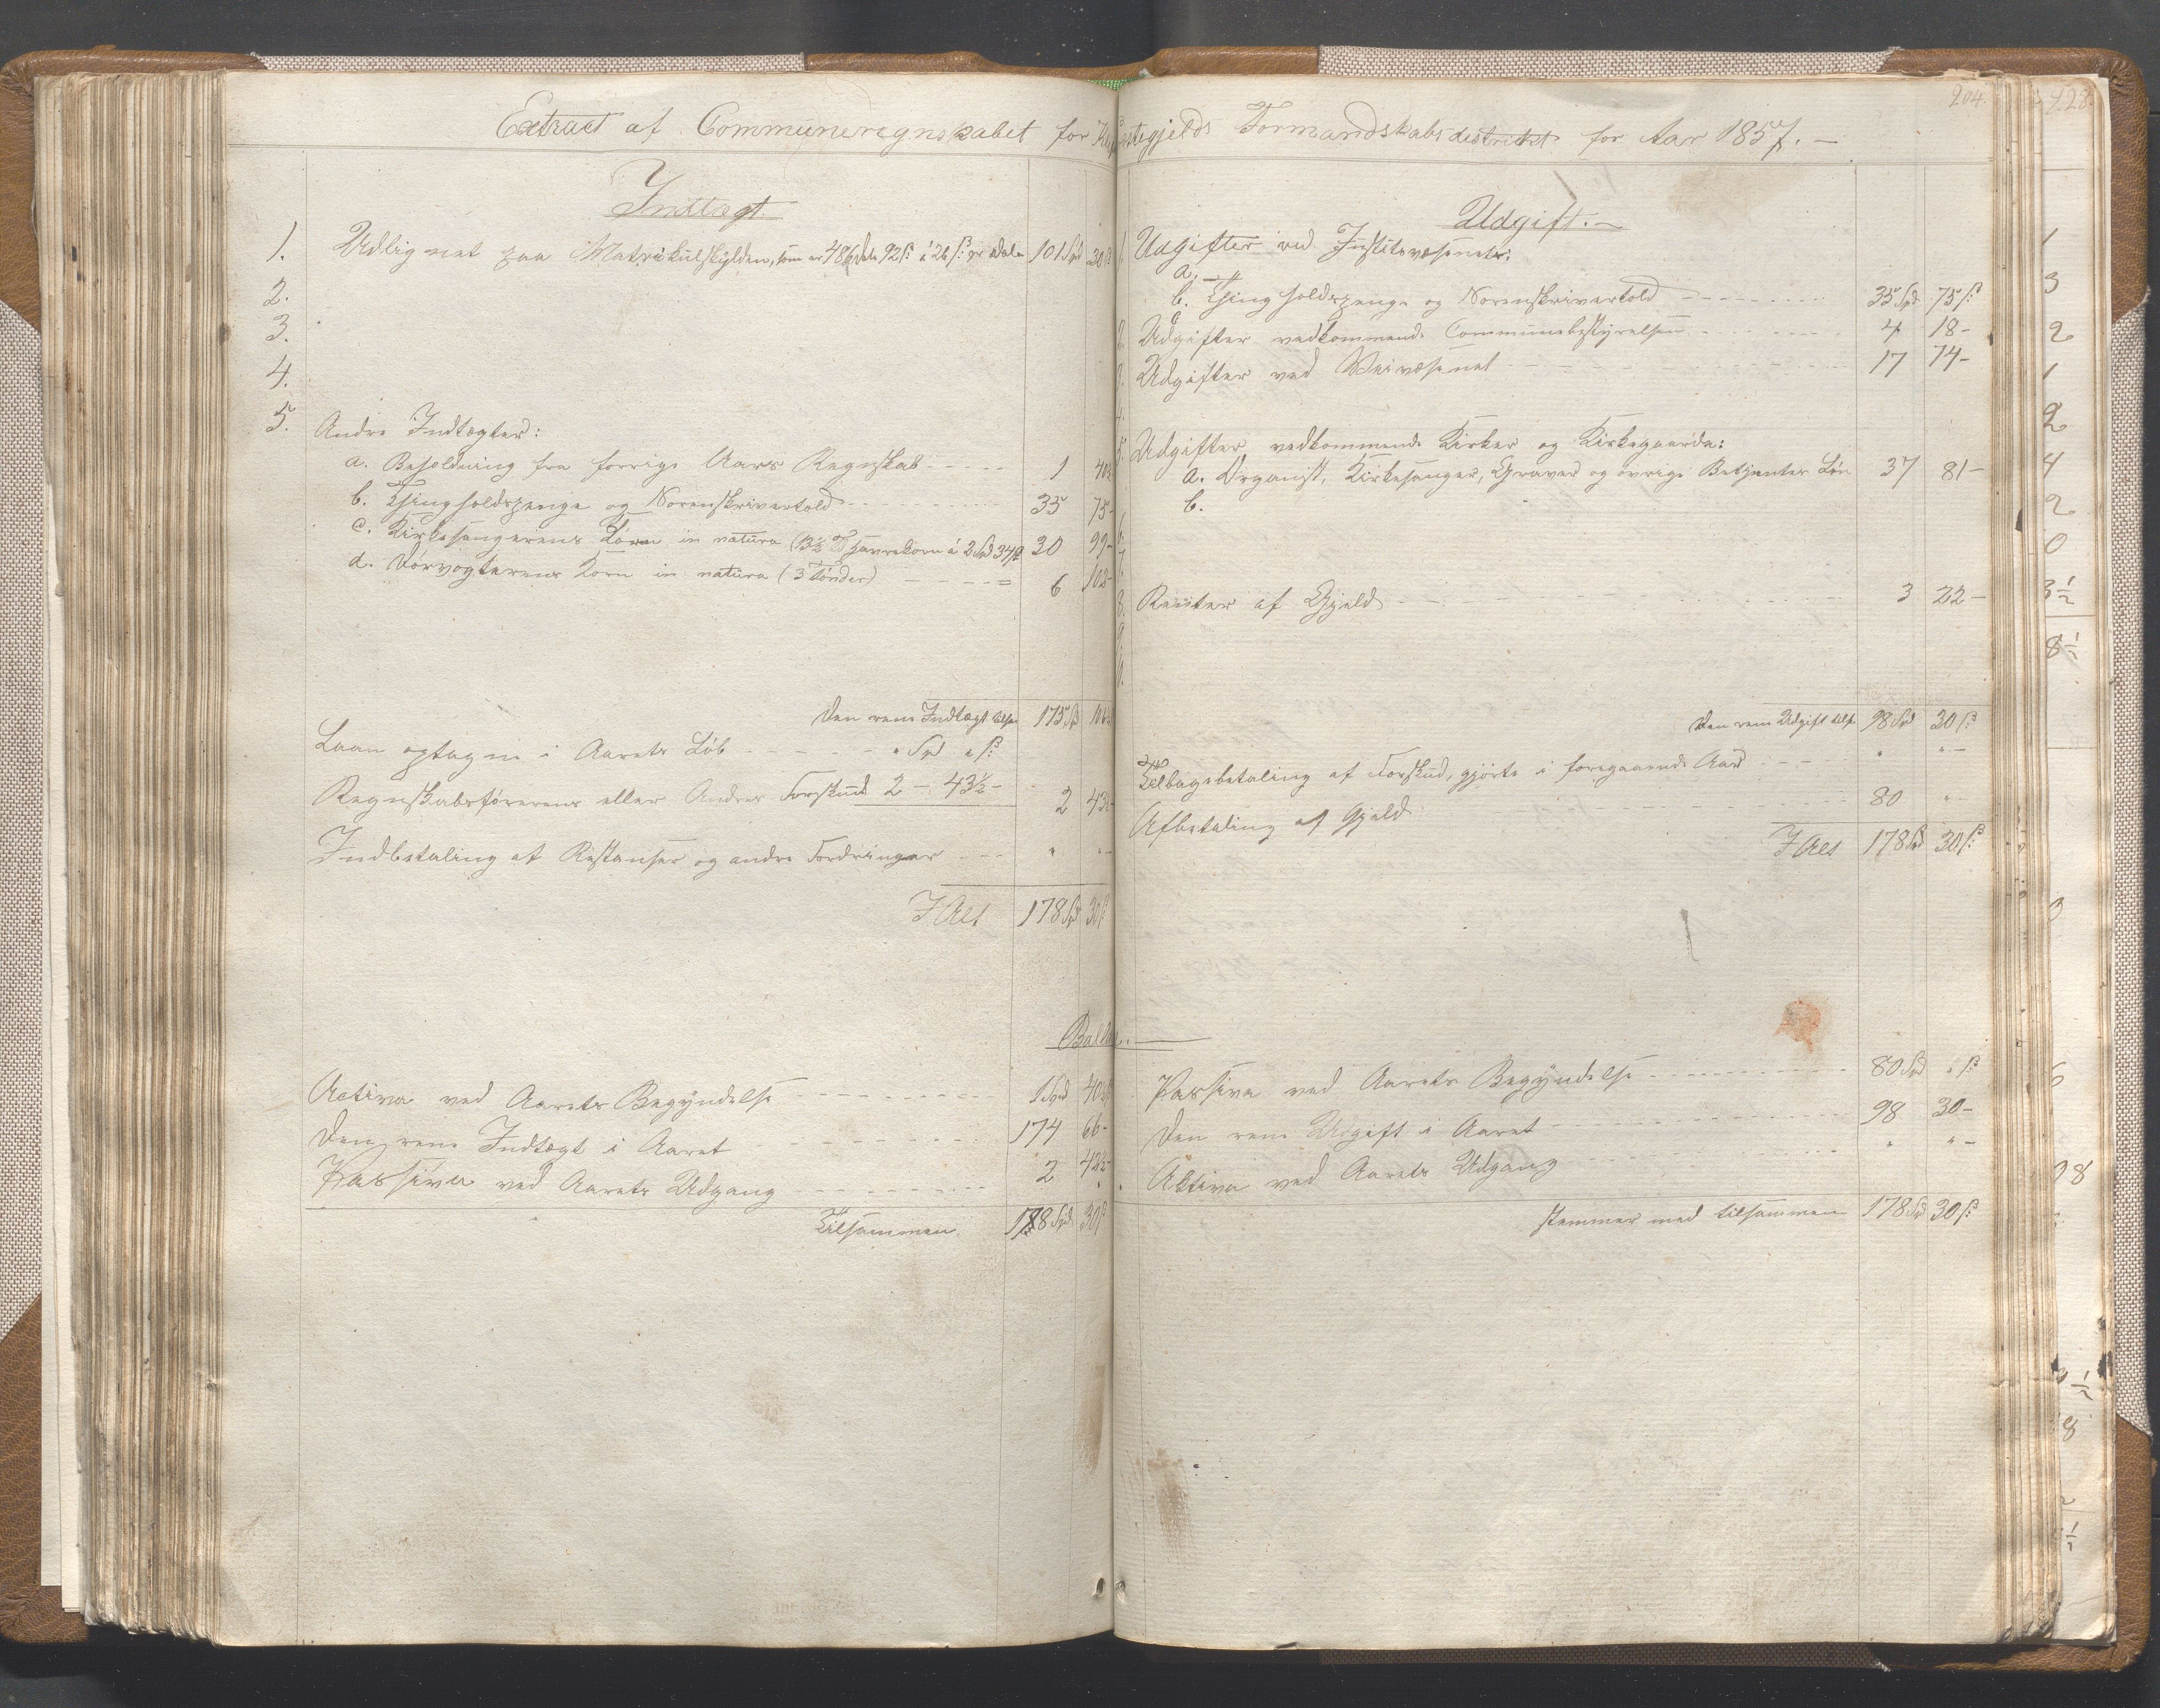 204.
Extract af Communeregnskabet for
stegjelds Formandskabsdistrikt for Aar 1857. –
Indtægt
1. Udlignet paa Matrikulskylden, som er 486 Dale 92 ß à 26 ß pr Daler 101 Spd 30 ß
2.
3.
4.
5. Andre Indtægter:
a. Beholdning fra forrige Aars Regnskab 1 40½
b. Thingholdspenge og Sorenskrivertold 35 75-
c. Kirkesangerens Korn in natura (13½ Td havrekorn à 2 Spd 34 ß 30 99-
d. Dørvogterens Korn in natura (3 Tønder) 6 102-
Den rene Indtægt tils. 175 Spd
Laan optagne i Aarets Løb " Spd " ß
Regnskabsførerens eller Andres Forskud 2 - 43½ - 2 43½
Indbetaling af Restanser og andre Fordringer " "
I Alt 178 Spd 30 ß
Udgift. –
1. Udgifter ved Justitsvæsenet:
a. –
b. Thingholdspenge og Sorenskrivertold 35 Spd 75 ß
c
2. Udgifter vedkommende Communebestyrelsen 4 18-
3. Udgifter ved Veivæsenet 17 74-
4.
5. Udgifter vedkommende Kirker og Kirkegaarde:
a. Organist, Kirkesanger, Graver og øvrige Betjenter Løn 37 81-
b.
6.
7.
8. Renter af Gjeld 3 22-
9.
Den rene Udgift tils. 98 Spd 30 ß
Tilbagebetaling af Forskud, gjorte i foregaaende Aar " " -
Afbetaling af Gjeld 80 "
I Alt 178 Spd 30 ß
Activa ved Aarets Begyndelse 1 Spd 40½
Den rene Indtægt i Aaret 174 66-
Passiva ved Aarets Udgang 2
Tilsammen 178 Spd 30 ß
Passiva ved Aarets Begyndelse 80 Spd " ß
Den rene Udgift i Aaret 98 30-
Aktiva ved Aarets Udgang " " -
stemmer med tilsammen 178 Spd 30 ß